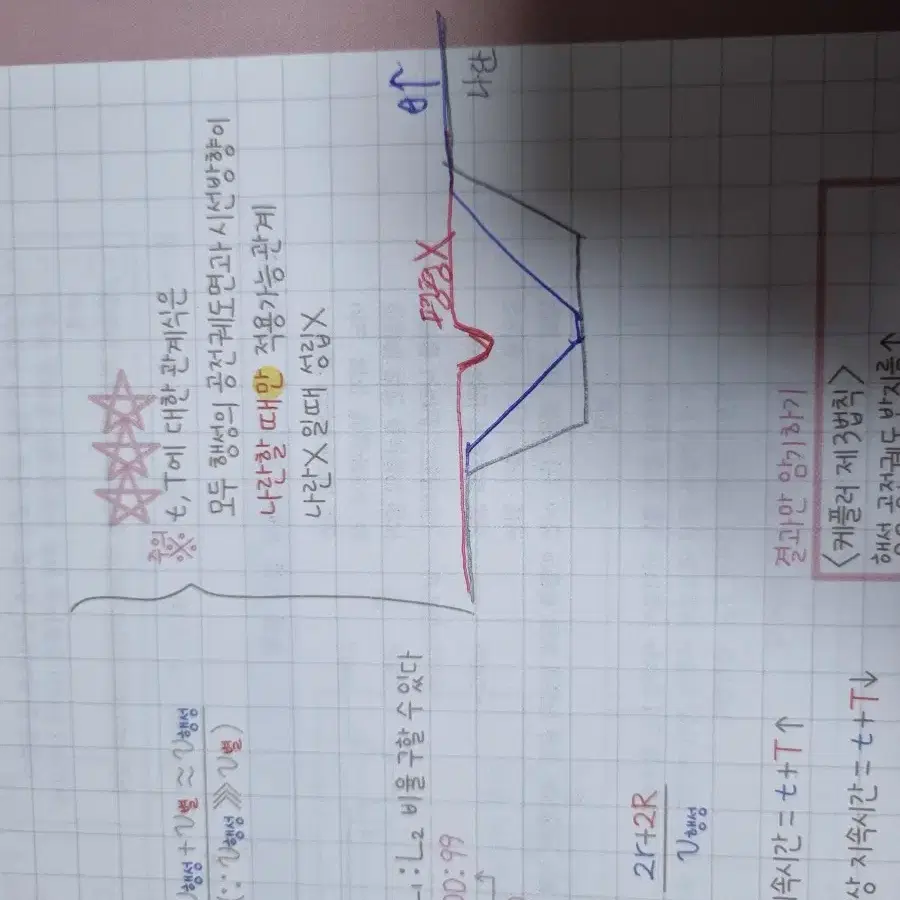 주의
※
t, T에 대한 관계식은
모두 행성의 공전궤도면과 시선방향이
나란할 때만 적용가능 관계
나란X 일때 성립X
θ↑
나란
평평X
결과만 암기하기
<케플러 제3법칙>
행성 공전궤도 반지름↑
행성 + v별 ≈ v행성
(∵ v행성 ⋙ v별)
:L₂ 비를 구할 수 있다
00:99
2r+2R
v행성
지속시간 = t+T↑
상 지속시간 = t+T↓